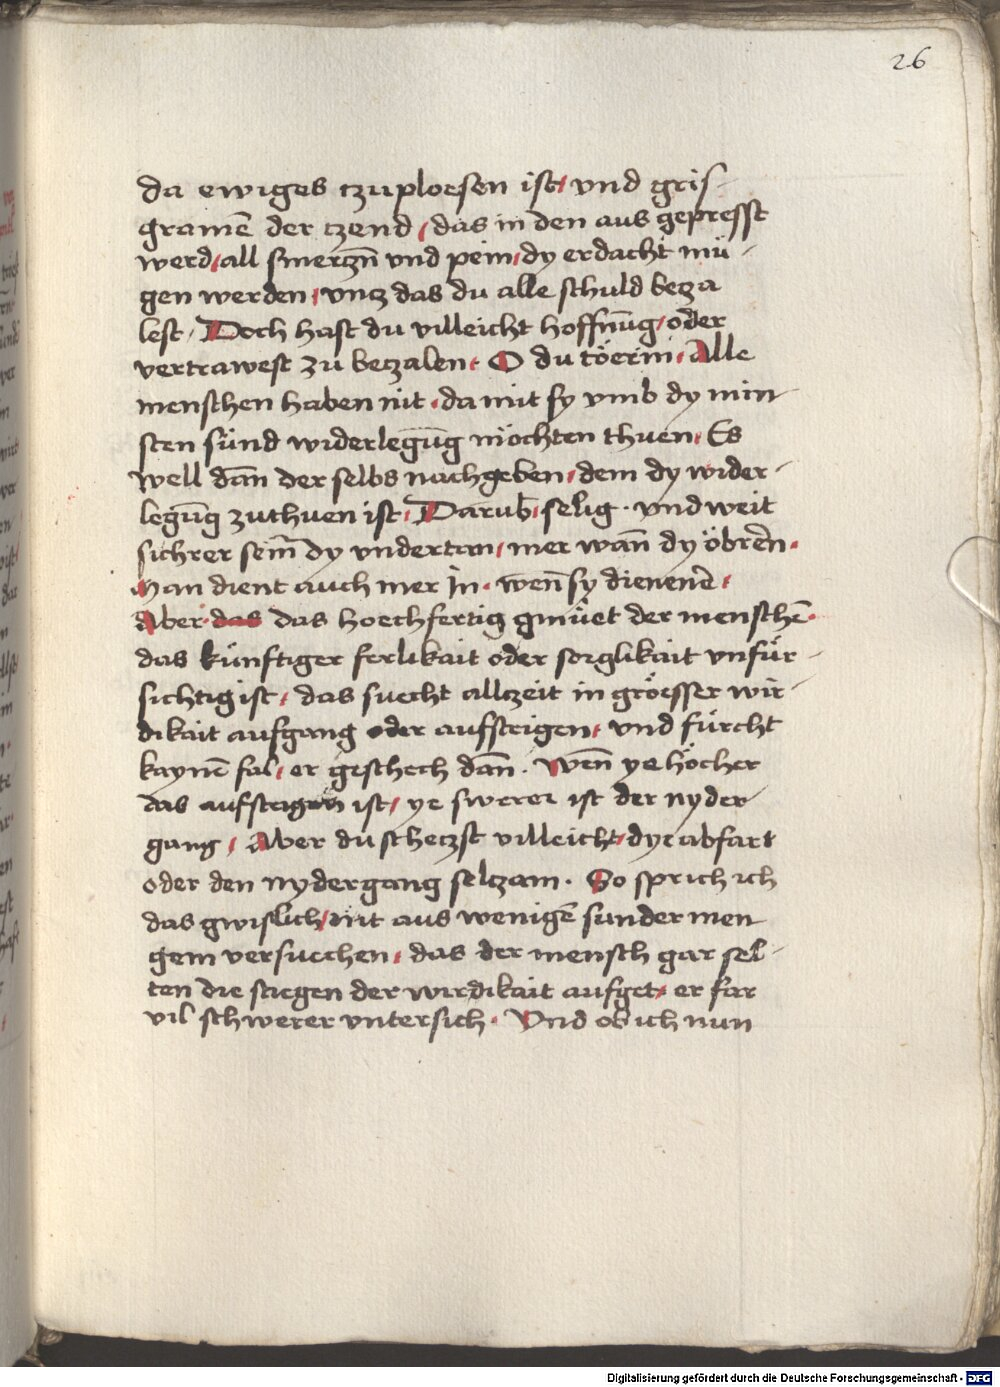 26
da ewiges tzuploesen ist / vnd gris-
gramē der tzend / das in den aus gepresst
werd / all smerczn̄ vnd pein / dy erdacht mü-
gen werden / vncz das du alle schuld beza
lest / Doch hast du villeicht hoffnūg / oder
vertrawest zu beczalen / O du töerin / Alle
menschen haben nit · da mit sy vmb dy min
sten sünd widerlegūg möchten thuen / Es
well dān der selbs nachgeben / dem dy wider-
legūg zuthuen ist / Darub̄ / selig · vnd weit
sichrer sein dy vndertan / mer wān dy öbrēn ·
Man dient auch mer In · wen̄ sy dienenē /
Aber das das hoechfertig gmüet der menschē ·
das künftiger ferlikait oder sorglikait vnfür-
sichtig ist / das suecht allczeit in gröesser wir-
dikait aufgang oder aufsteigen / vnd fürcht
kaynē fal / er geschech dān · Wen̄ ye höcher
das aufsteigen ist / ye swerer ist der nyder
gang / Aber du scheczst villeicht / dye abfart
oder den nydergang selczam · So sprich ich
das gwislich / nit aus wenigē sunder men
gem versuechen / das der mensch gar sel-
ten die stiegen der wirdikait aufget / er far
vil schwerer vntersich · Vnd ob ich nun
Digitalisierung gefördert durch die Deutsche Forschungsgemeinschaft - DFG